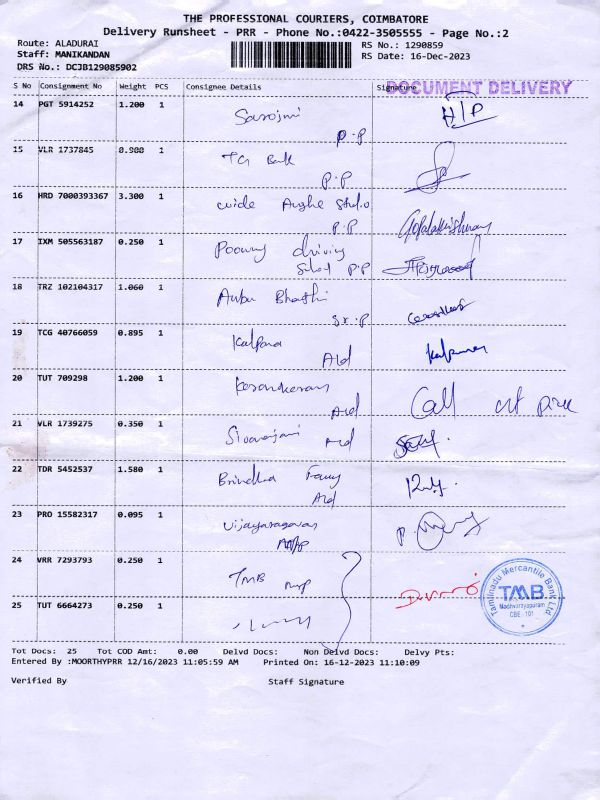 THE PROFESSIONAL COURIERS, COIMBATORE
Delivery Runsheet - PRR - Phone No.:0422-3505555 - Page No.:2
Route: ALADURAI
Staff: MANIKANDAN
DRS No.: DCJB129085902
RS No.: 1290859
RS Date: 16-Dec-2023
DOCUMENT DELIVERY
S No Consignment No Weight PCS Consignee Details Signature
14 PGT 5914252 1.200 1 Sarojini P.P H/P
15 VLR 1737845 0.980 1 Bank P.P
16 HRD 7000393367 3.300 1 wide Angle Studio P.P Gopalakrishnan
17 IXM 505563187 0.250 1 driving School P.P
18 TRZ 102104317 1.060 1 Bharathi Sr.P
19 TCG 40766059 0.895 1 Kalpana Ald
20 TUT 709298 1.200 1 Ald Call not pick
21 VLR 1739275 0.350 1 Sivaranjani Ald
22 TDR 5452537 1.580 1 Brindha Fancy Ald
23 PRO 15582317 0.095 1 Vijayaragavan
24 VRR 7293793 0.250 1 TMB
25 TUT 6664273 0.250 1
Tamilnadu Mercantile Bank Ltd
TMB
CBE - 101
Tot Docs: 25 Tot COD Amt: 0.00 Delvd Docs: Non Delvd Docs: Delvy Pts:
Entered By :MOORTHYPRR 12/16/2023 11:05:59 AM Printed On: 16-12-2023 11:10:09
Verified By Staff Signature